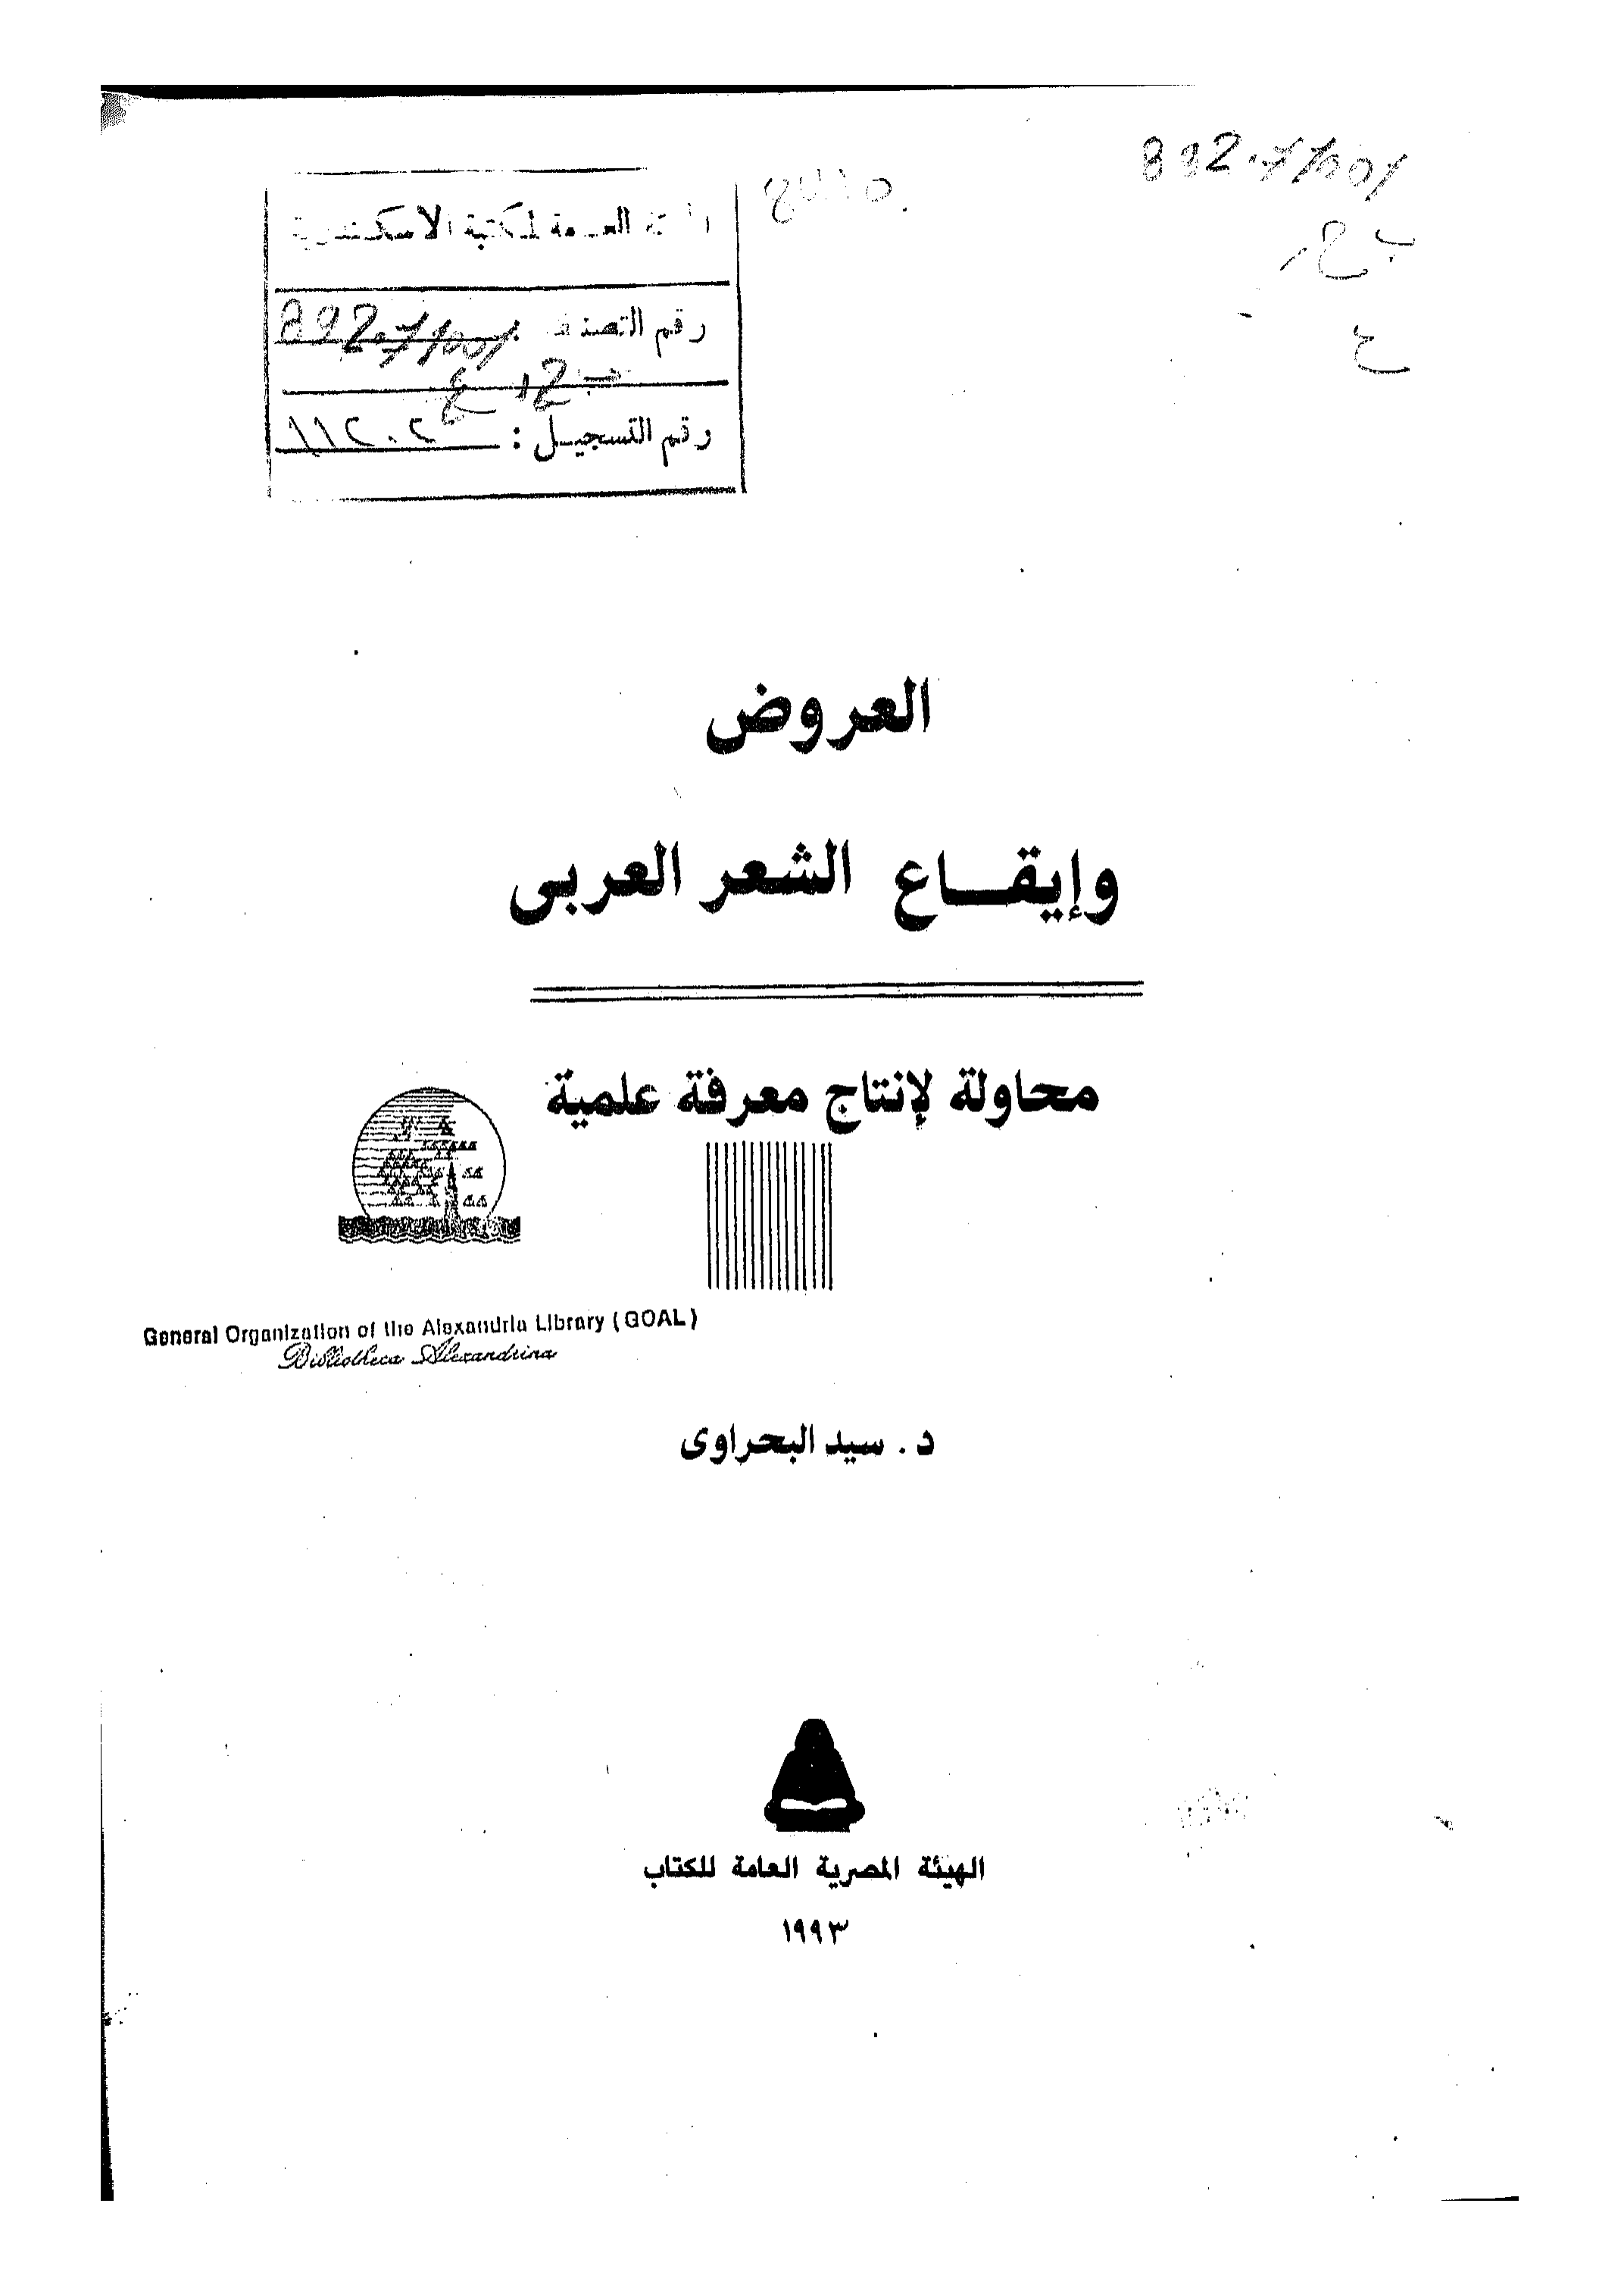 892.71001
ب ح ر
ع
الهيئة العامة لمكتبة الاسكندرية
رقم التصنيف 892.71001
ب ح ر ع
رقم التسجيل : ١١٢٠٢
العروض
وإيقاع الشعر العربى
محاولة لإنتاج معرفة علمية
General Organization of the Alexandria Library (GOAL)
Bibliotheca Alexandrina
د. سيد البحراوى
الهيئة المصرية العامة للكتاب
١٩٩٣